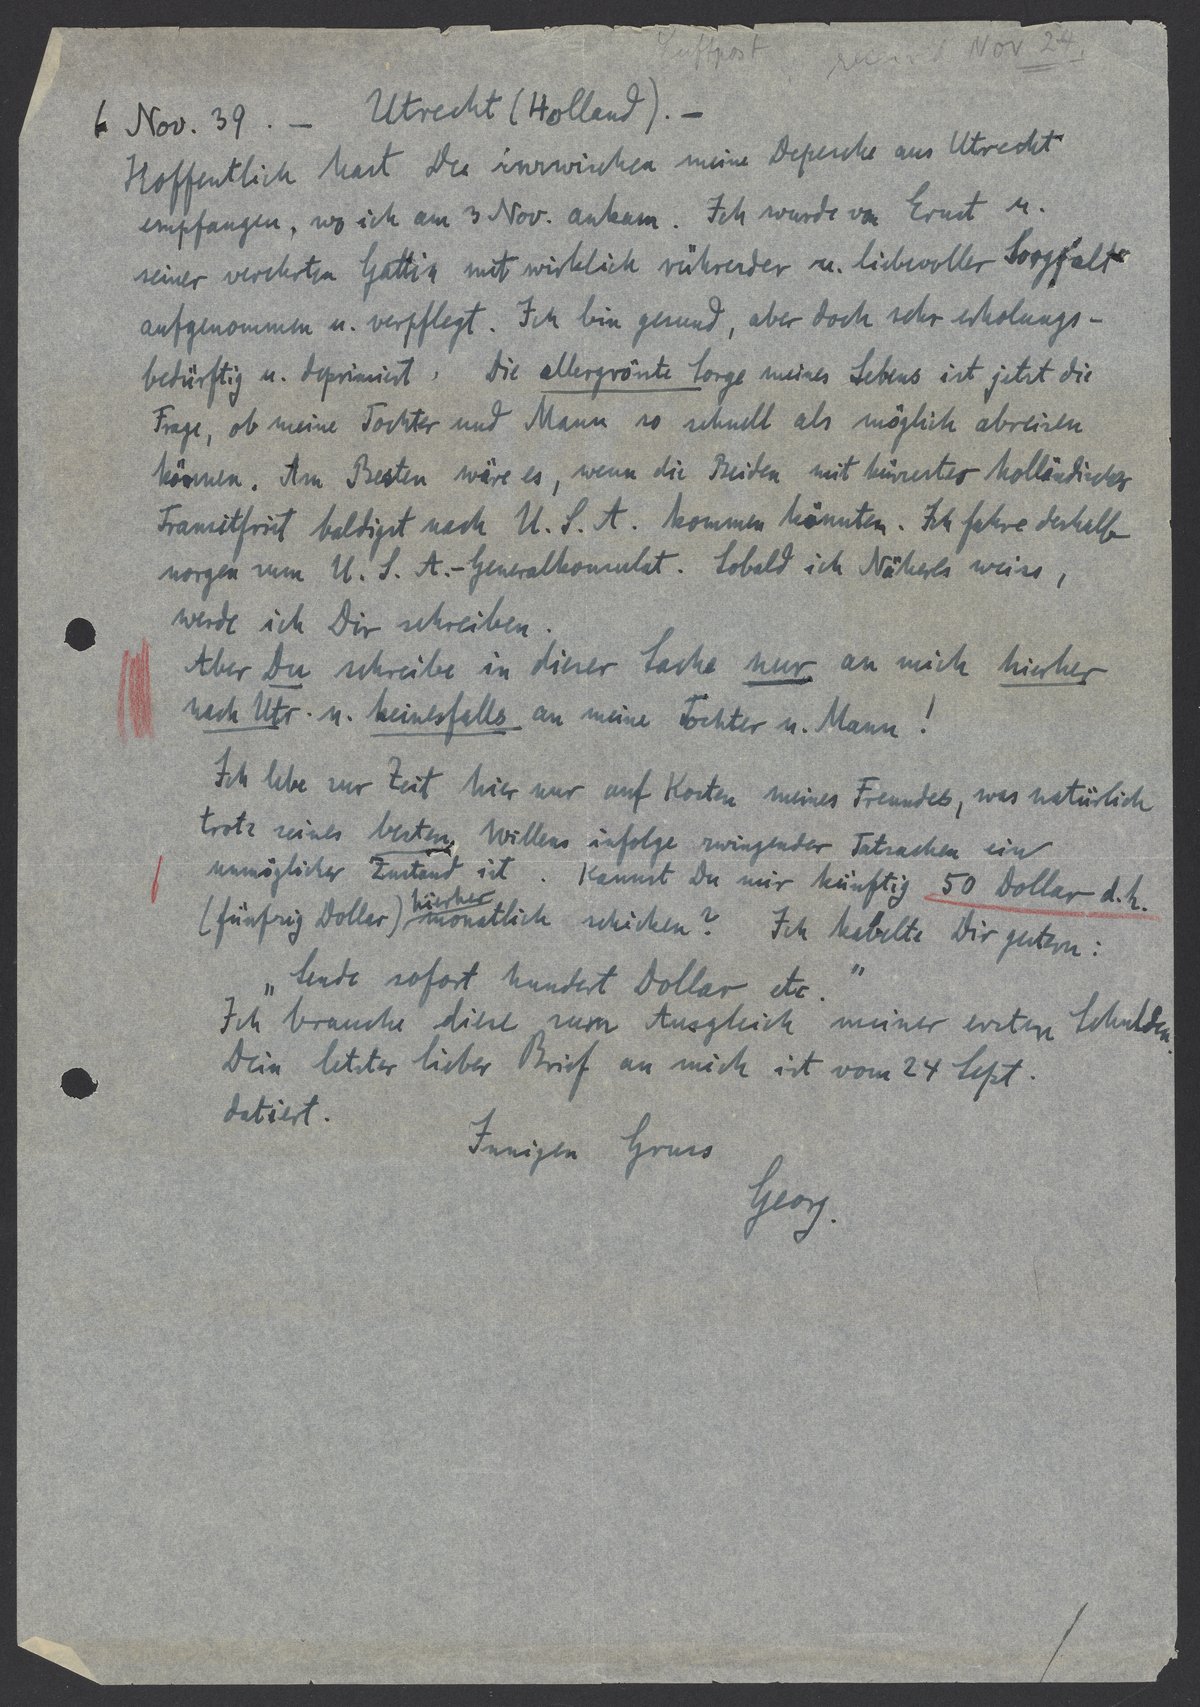 Luftpost received Nov 24.
6 Nov. 39. – Utrecht (Holland). –
Hoffentlich hast Du inzwischen meine Depesche aus Utrecht
empfangen, wo ich am 3 Nov. ankam. Ich wurde von Ernst u.
seiner verehrten Gattin mit wirklich rührender u. liebevoller Sorgfalt
aufgenommen u. verpflegt. Ich bin gesund, aber doch sehr erholungs-
bedürftig u. deprimiert. Die allergrösste Sorge meines Lebens ist jetzt die
Frage, ob meine Tochter und Mann so schnell als möglich abreisen
können. Am Besten wäre es, wenn die Beiden mit kürzester holländischer
Transitfrist baldigst nach U.S.A. kommen könnten. Ich fahre deshalb
morgen zum U.S.A.-Generalkonsulat. Sobald ich Näheres weiss,
werde ich Dir schreiben.
Aber Du schreibe in dieser Sache nur an mich hierher
nach Utr. u. keinesfalls an meine Tochter u. Mann!
Ich lebe zur Zeit hier nur auf Kosten meines Freundes, was natürlich
trotz seines besten Willens infolge zwingender Tatsachen ein
unmöglicher Zustand ist. Kannst Du mir künftig 50 Dollar d.h.
hierher
(fünfzig Dollar) monatlich schicken? Ich kabelte Dir gestern:
„Sende sofort hundert Dollar etc."
Ich brauche diese zum Ausgleich meiner ersten Schulden.
Dein letzter lieber Brief an mich ist vom 24 Sept.
datiert.
Innigen Gruss
Georg.